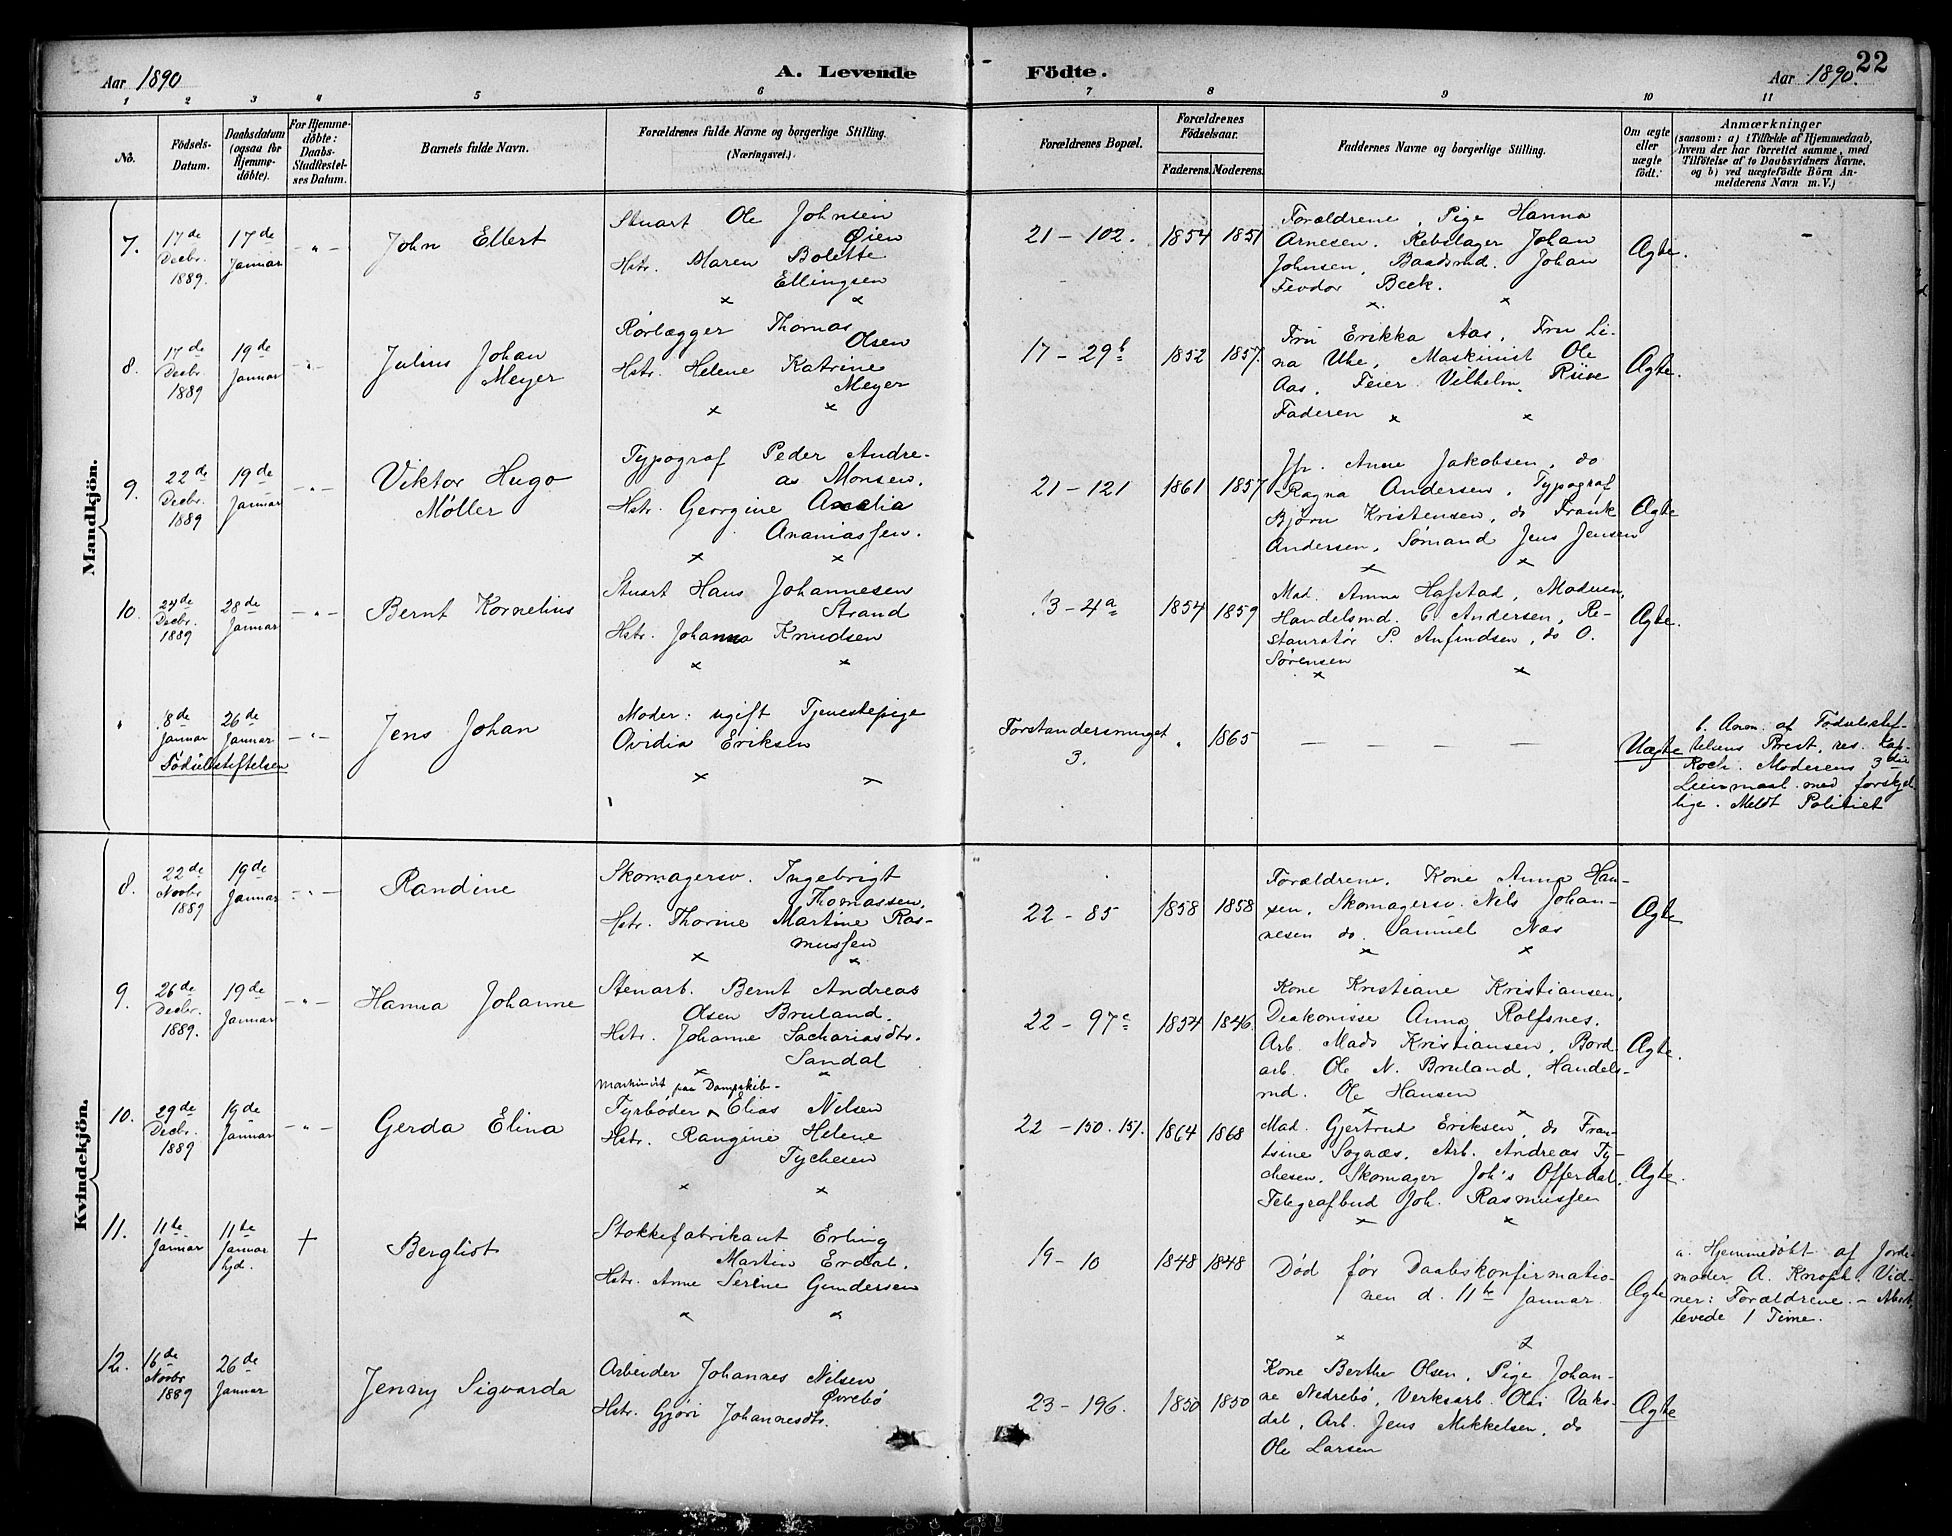 Aar 1890
A. Levende
Födte.
Aar 1890.
22
1 2 3 4 5 6 7 8 9 10 11
No.
Födsels-Datum.
Daabsdatum (ogsaa för Hjemme-döbte).
For Hjemme-döbte: Daabs-Stadfæstel-ses Datum.
Barnets fulde Navn.
Forældrenes fulde Navne og borgerlige Stilling.
(Næringsvei.)
Forældrenes Bopæl.
Forældrenes Födselsaar.
Faderens. Moderens.
Faddernes Navne og borgerlige Stilling.
Om ægte eller uægte födt.
Anmærkninger
(saasom: a) i Tilfælde af Hjemmedaab, hvem der har forrettet samme, med Tilföielse af to Daabsvidners Navne, og b) ved uægtefödte Börn An-melderens Navn m. V.)
Mandkjön.
7.
17de Decbr. 1889.
17de Januar
John Ellert
Stuart Ole Johnsen
Øien
Hstr. Maren Bolette
Ellingsen
21 - 102.
1854 1851
Forældrene, Pige Hanna
Arnesen. Rebslager Johan
Johnsen, Baadsmd. Johan
Fevdor Beck.
Ægte.
8.
17de Decbr. 1889
19de Januar
Julius Johan
Meyer
Rørlægger Thomas
Olsen
Hstr. Helene Katrine
Meyer
17 - 29b
1852 1857.
Fru Erikka Aas, Fru Li-
na Uhe, Maskinist Ole
Aas, Feier Vilhelm Riise
Faderen
Ægte.
9.
22de Decbr. 1889
19de Januar
Viktor Hugo
Møller
Typograf Peder Andre-
as Monsen,
Hstr. Georgine
Ananiassen.
21 - 121
1861 1857
Jfr. Anne Jakobsen, do
Ragna Andersen, Typograf
Bjørn Kristensen, do Frank
Andersen, Sømand Jens Jensen
Ægte
10.
24de Decbr. 1889
28de Januar
Bernt Kornelius
Stuart Hans Johannesen
Strand
Hstr. Johanna Knudsen
3 - 4a
1854 1859
Mad. Anna Hafstad, Moderen,
Handelsmd. C. Andersen, Re-
stauratør S. Anfindsen, do O.
Sørensen
Ægte.
8de Januar
26de Januar
Fødselsstiftelsen
Jens Johan
Moder: ugift Tjenestepige
Ovidia Eriksen
Forstandersmuget
3.
1865
Uægte
b. Anm. af Fødselsstif-
telsens Prest, res. Kap.
Koch. Moderens 3die
Leiermaal med forskjel-
lige. Meldt Politiet
Kvindekjön.
8.
22de Novbr 1889
19de Januar
Randine
Skomagersv. Ingebrigt
Thomassen,
Hstr. Thorine Martine Ras-
mussen
22 - 85
1858 1858
Forældrene, Kone Anna Han-
sen, Skomagersv. Nils Johan-
nesen do. Samuel Næs
Ægte
9.
26de Decbr. 1889.
19de Januar
Hanna Johanne
Stenarb. Bernt Andreas
Olsen Bruland.
Hstr. Johanne Sachariasdtr.
Sandal
22 - 97c
1854 1846.
Kone Kristiane Kristiansen,
Diakonisse Anna Rolfsnes,
Arb. Mads Kristiansen, Bord
arb. Ole N. Bruland, Handels-
md. Ole Hansen
Ægte.
10.
29de Decbr. 1889
19de Januar
Gerda Elina
Maskinist paa Dampskib-
Fyrbøder Elias Nilsen
Hstr. Rangine Helene
Tychesen
22 - 150. 151.
1864 1868
Mad. Gjertrud Eriksen, do Fran-
tsine Sognæs, Arb. Andreas Ty-
chesen, Skomager Joh's Offerdal,
Telegrafbud Joh. Rasmussen
Ægte.
11.
11te Januar
11te Januar hjd.
Bergliot
Stokkefabrikant Erling
Martin Erdal.
Hstr. Anne Serine Gundersen
19 - 10
1848 1848
Død før Daabskonfirmatio-
nen d. 11te Januar.
Ægte
a. Hjemmedøbt af Jorde-
moder A. Knoph. Vid-
ner: Forældrene. -
levede 1 Time.
12.
16de Novbr 1889
26de Januar
Jenny Sigvarda
Arbeider Johannes Nilsen
Øvrebø
Hstr. Gjøri Johannesdtr.
23 - 196.
1850 1850
Kone Berthe Olsen, Pige Johan-
ne Nedrebø, Verksarb. Ole Vaks-
dal, Arb. Jens Mikkelsen, do
Ole Larsen
Ægte